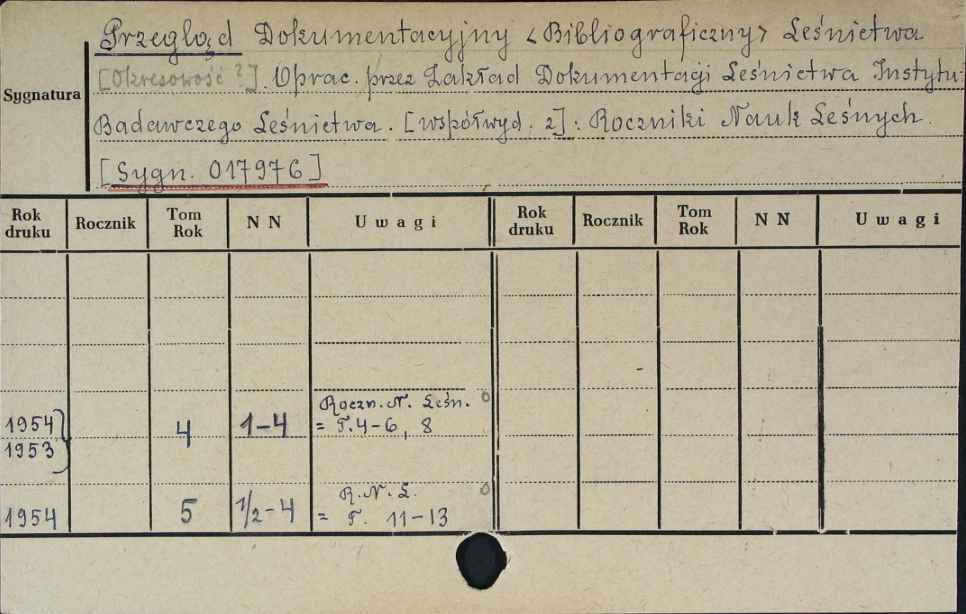 Przegląd Dokumentacyjny <Bibliograficzny> Leśnictwa
[Okresowość ?]. Oprac. przez Zakład Dokumentagi Leśnictwa Instytu-
Sygnatura
Badawczego Leśnictwa. [współwyd. z]: Roczniki Nauk Leśnych.
[Sygn. 017976]
Rok druku Rocznik Tom Rok NN Uwagi Rok druku Rocznik Tom Rok NN Uwagi
Roczn. N. Leśn. o
1954} 4 1-4 = T. 4-6, 8
1953
R. N. L. o
1954 5 1/2-4 = T. 11-13